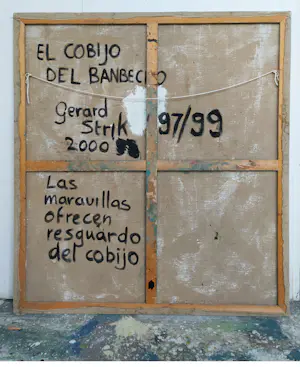 EL COBIJO
DEL BANBECHO
Gerard
Strik '97/99
2000
Las
maravillas
ofrecen
resguardo
del cobijo